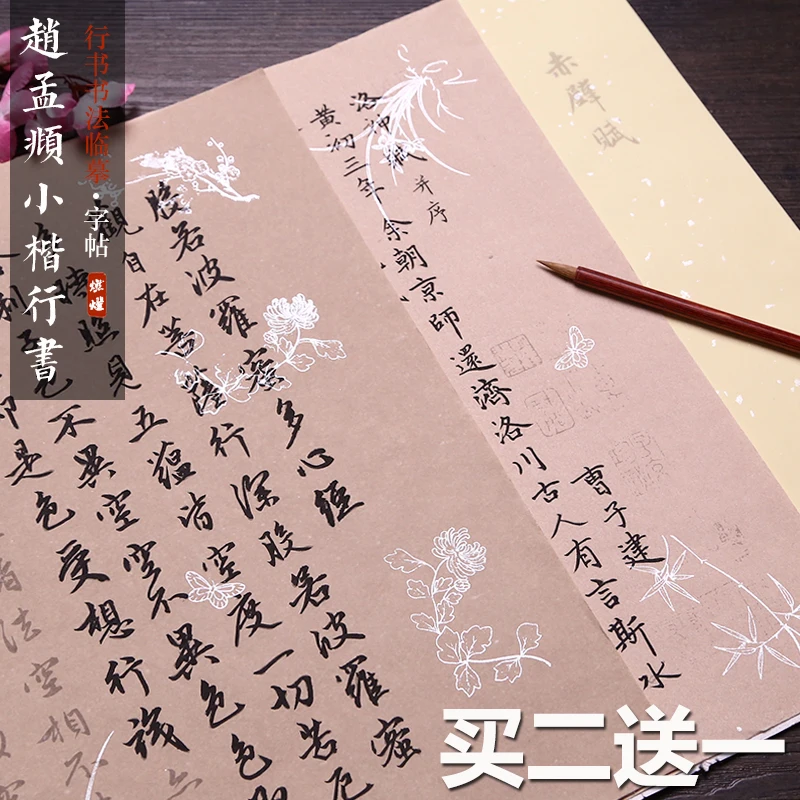 趙孟頫小楷行書
行书书法临摹·字帖
赤壁賦
洛神賦并序
曹子建
黄初三年余朝京師還濟洛川古人有言斯水
般若波羅蜜多心經
觀自在菩薩行深般若波羅蜜
照見五蘊皆空度一切苦厄
色不異空空不異色色
即是色受想行識
法空相不
买二送一